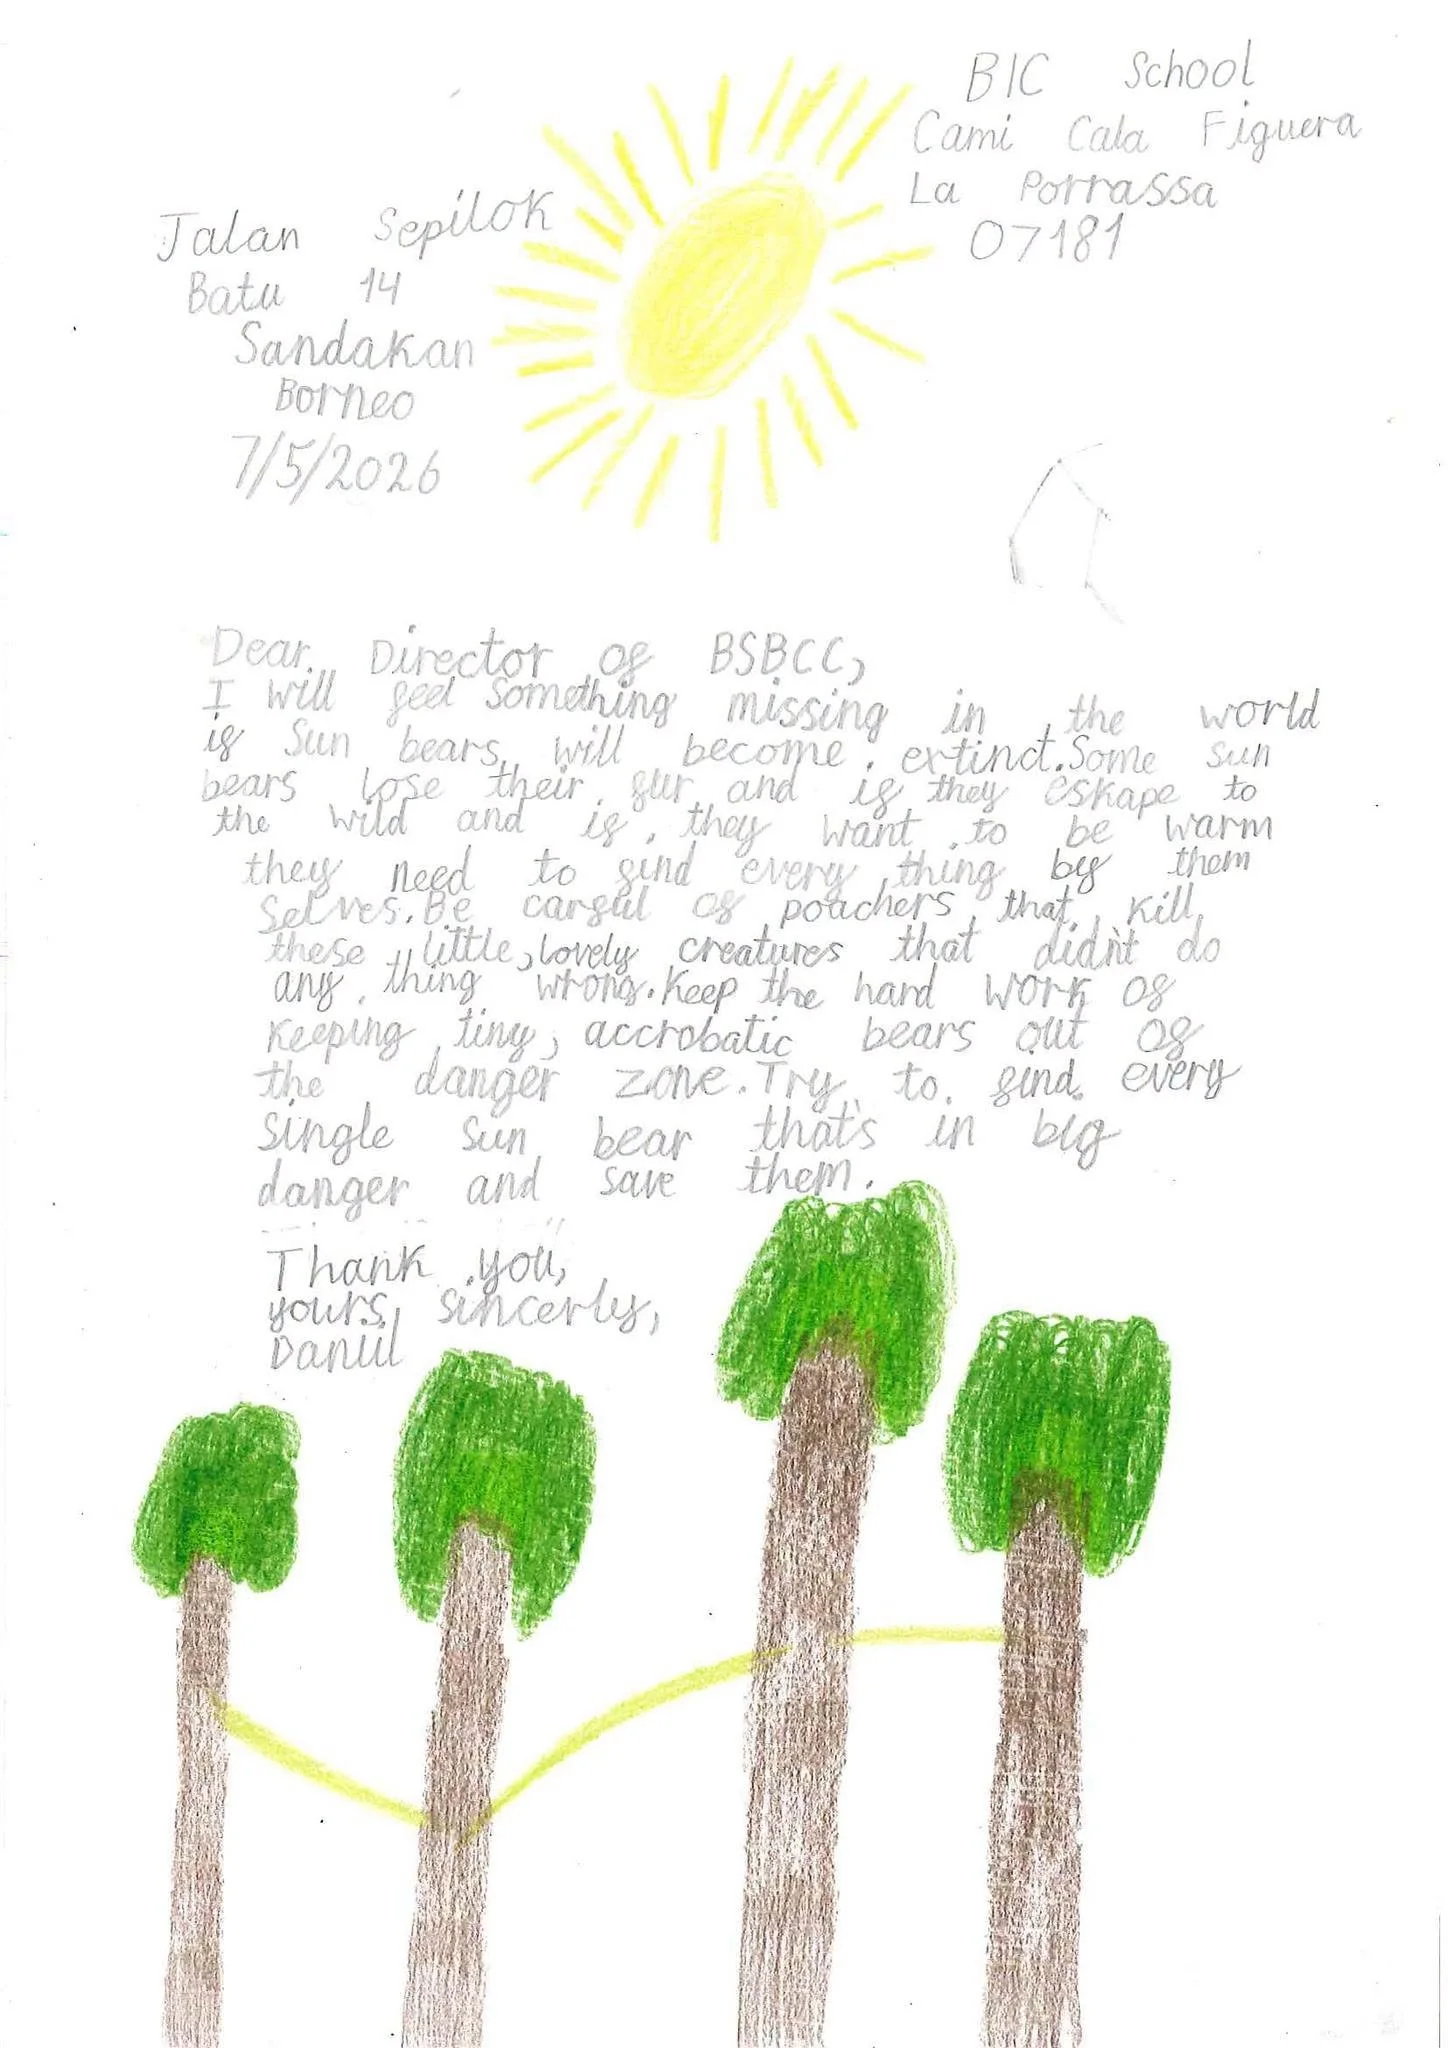 BIC School
Cami Cala Figuera
La Porrassa
07181
Jalan Sepilok
Batu 14
Sandakan
Borneo
7/5/2026
Dear Director of BSBCC,
I will feel something missing in the world
if Sun bears will become extinct. Some sun
bears lose their fur and if they eskape to
the wild and if they want to be warm
they need to find every thing by them
selves. Be carful of poachers that kill
these little, lovely creatures that didn't do
any thing wrong. Keep the hard work of
keeping tiny, accrobatic bears out of
the danger zone. Try to find every
single sun bear that's in big
danger and save them.
Thank you,
yours sincerly,
Daniil